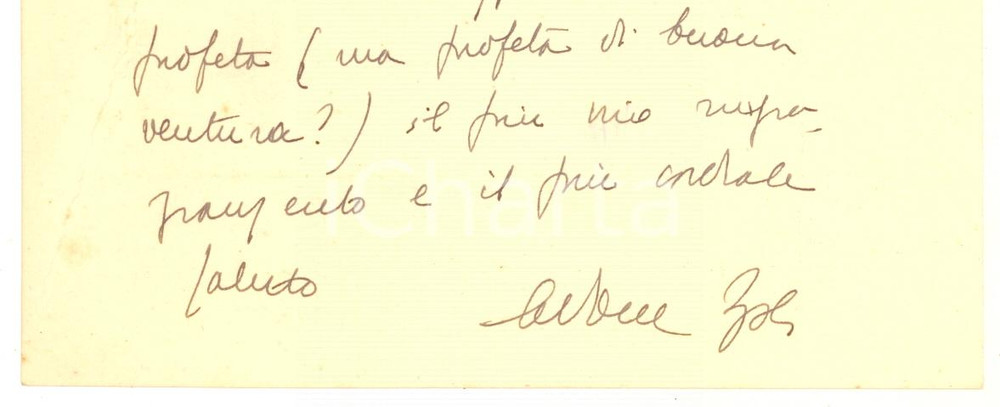 profeta (ma profeta di buona
ventura?) il più mio ringra-
ziamento e il più cordiale
saluto
iCharta